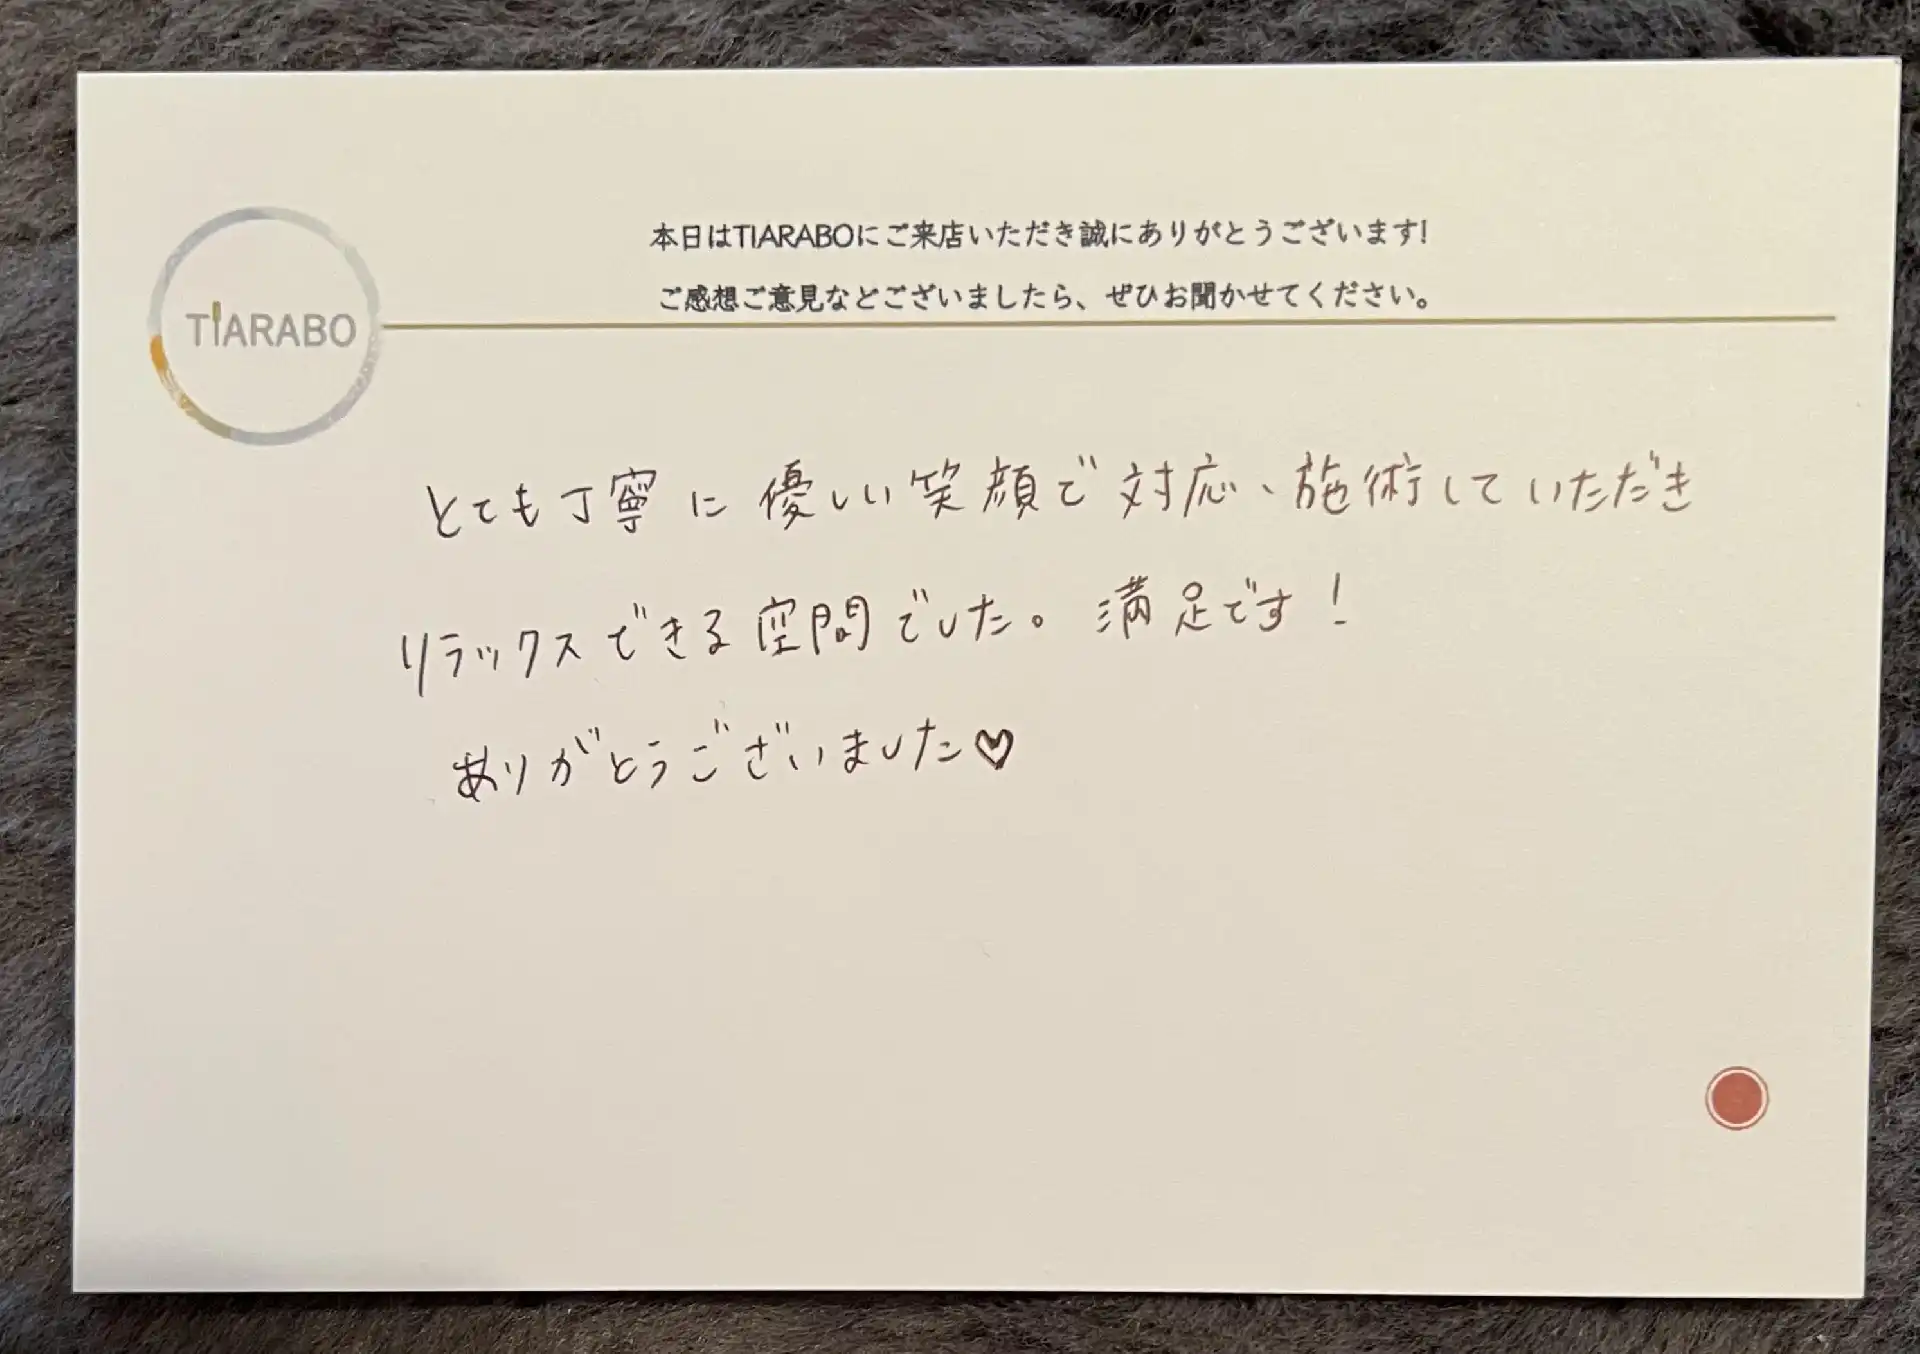 本日はTIARABOにご来店いただき誠にありがとうございます!
ご感想ご意見などございましたら、ぜひお聞かせてください。
TIARABO
とても丁寧に優しい笑顔で対応、施術していただき
リラックスできる空間でした。満足です！
ありがとうございました♡